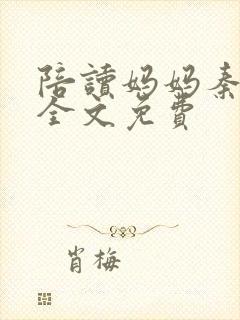 陪讀妈妈秦
全文免費
肖梅